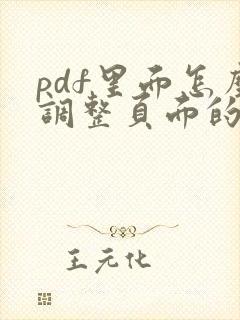 pdf里面怎麼
調整頁面的
王元化